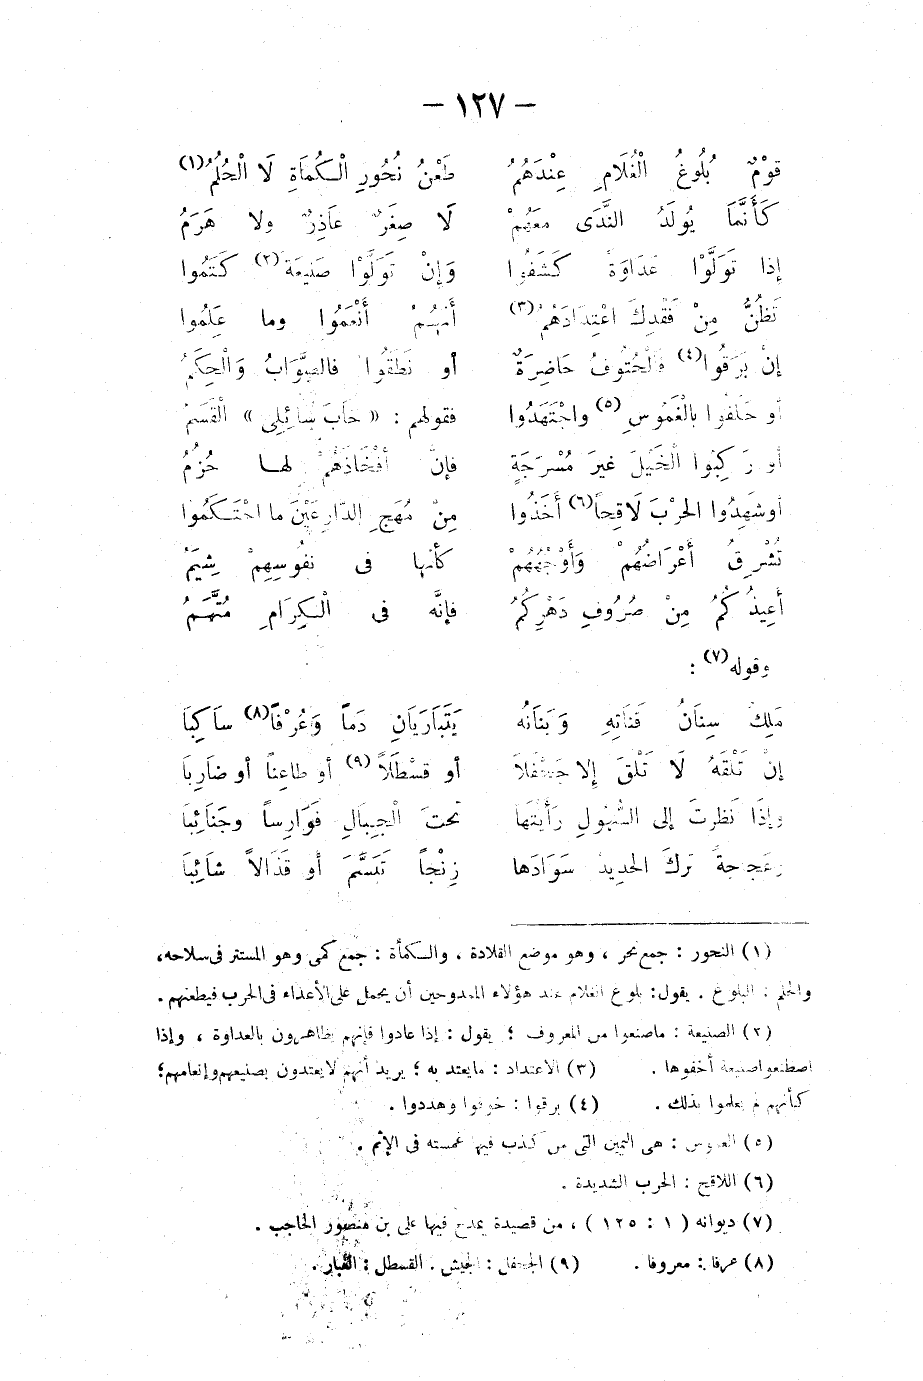 — ١٢٧ —
قَوْمٌ بُلُوغُ الْغُلَامِ عِنْدَهُمُ طَعْنُ نُحُورِ الْكُمَاةِ لَا الْحُلُمُ(١)
كَأَنَّمَا يُولَدُ النَّدَى مَعَهُمْ لَا صِغَرٌ عَاذِرٌ ولا هَرَمُ
إذا تَوَلَّوْا عَدَاوَةً كَشَفُوا وَإنْ تَوَلَّوْا صَنِيعَةً(٢) كَتَمُوا
تَظُنُّ مِنْ فَقْدِكَ اعْتِدَادَهُمُ(٣) أَنَّهُمْ أَنْعَمُوا وما عَلِمُوا
إنْ بَرَقُوا(٤) فَالْحُتُوفُ حَاضِرَةٌ أو نَطَقُوا فالصَّوَابُ وَالْحِكَمُ
أو حَلَفُوا بالْغَمُوسِ(٥) واجْتَهَدُوا فقولهم : « خَابَ سَائِلِى » الْقَسَمُ
أو رَكِبُوا الْخَيْلَ غيرَ مُسْرَجَةٍ فإنَّ أفْخَاذَهُمْ لهـا حُزُمُ
أوشَهِدُوا الحرْبَ لَاقِحاً(٦) أَخَذُوا مِنْ مُهَجِ الدَّارِعَيْنَ ما احْتَكَمُوا
تُشْرِقُ أَعْرَاضُهُمْ وَأَوْجُهُهُمْ كأنها فى نفُوسِهِمْ شِيَمُ
أُعِيذُكُمُ مِنْ صُرُوفِ دَهْرِكُمُ فإنَّه فى الْكِرَامِ مُتَّهَمُ
وقوله(٧) :
مَلِكٌ سِنَانُ قَنَاتِهِ وَبَنَانُه يَتَبَارَيَانِ دَماً وَعُرْفاً(٨) سَاكِبَا
إنْ تَلْقَهُ لَا تَلْقَ إلا جَحْفَلاً أو قَسْطَلاً(٩) أو طاعِناً أو ضَارِبَا
وإذَا نَظَرتَ إلى السُّهُولِ رَأَيْتَهَا تحتَ الْجِبَالِ فَوَارِساً وجَنَائِبَا
وعَجاجةً تركَ الحديدُ سَوَادَها زِنْجاً تَبَسَّمَ أو قَذَالاً شَائِبَا
(١) النحور : جمع نحر ، وهو موضع القلادة ، والكمأة : جمع كمى وهو المستتر فى سلاحه ،
والحلم : البلوغ . يقول : بلوغ الغلام عند هؤلاء الممدوحين أن يحمل على الأعداء فى الحرب فيطعنهم .
(٢) الصنيعة : ماصنعوا من المعروف ؛ يقول : إذا عادوا فإنهم يظاهرون بالعداوة ، وإذا
اصطنعوا صنيعة أخفوها . (٣) الاعتداد : مايعتد به ؛ يريد أنهم لايعتدون بصنيعهم وإنعامهم ؛
كأنهم لم يعلموا بذلك . (٤) برقوا : خوفوا وهددوا .
(٥) الغموس : هى اليمين التى من كذب فيها غمسته فى الإثم .
(٦) اللاقح : الحرب الشديدة .
(٧) ديوانه ( ١ : ١٢٥ ) ، من قصيدة يمدح فيها على بن منصور الحاجب .
(٨) عرفا : معروفا . (٩) الجحفل : الجيش . القسطل : الغبار .